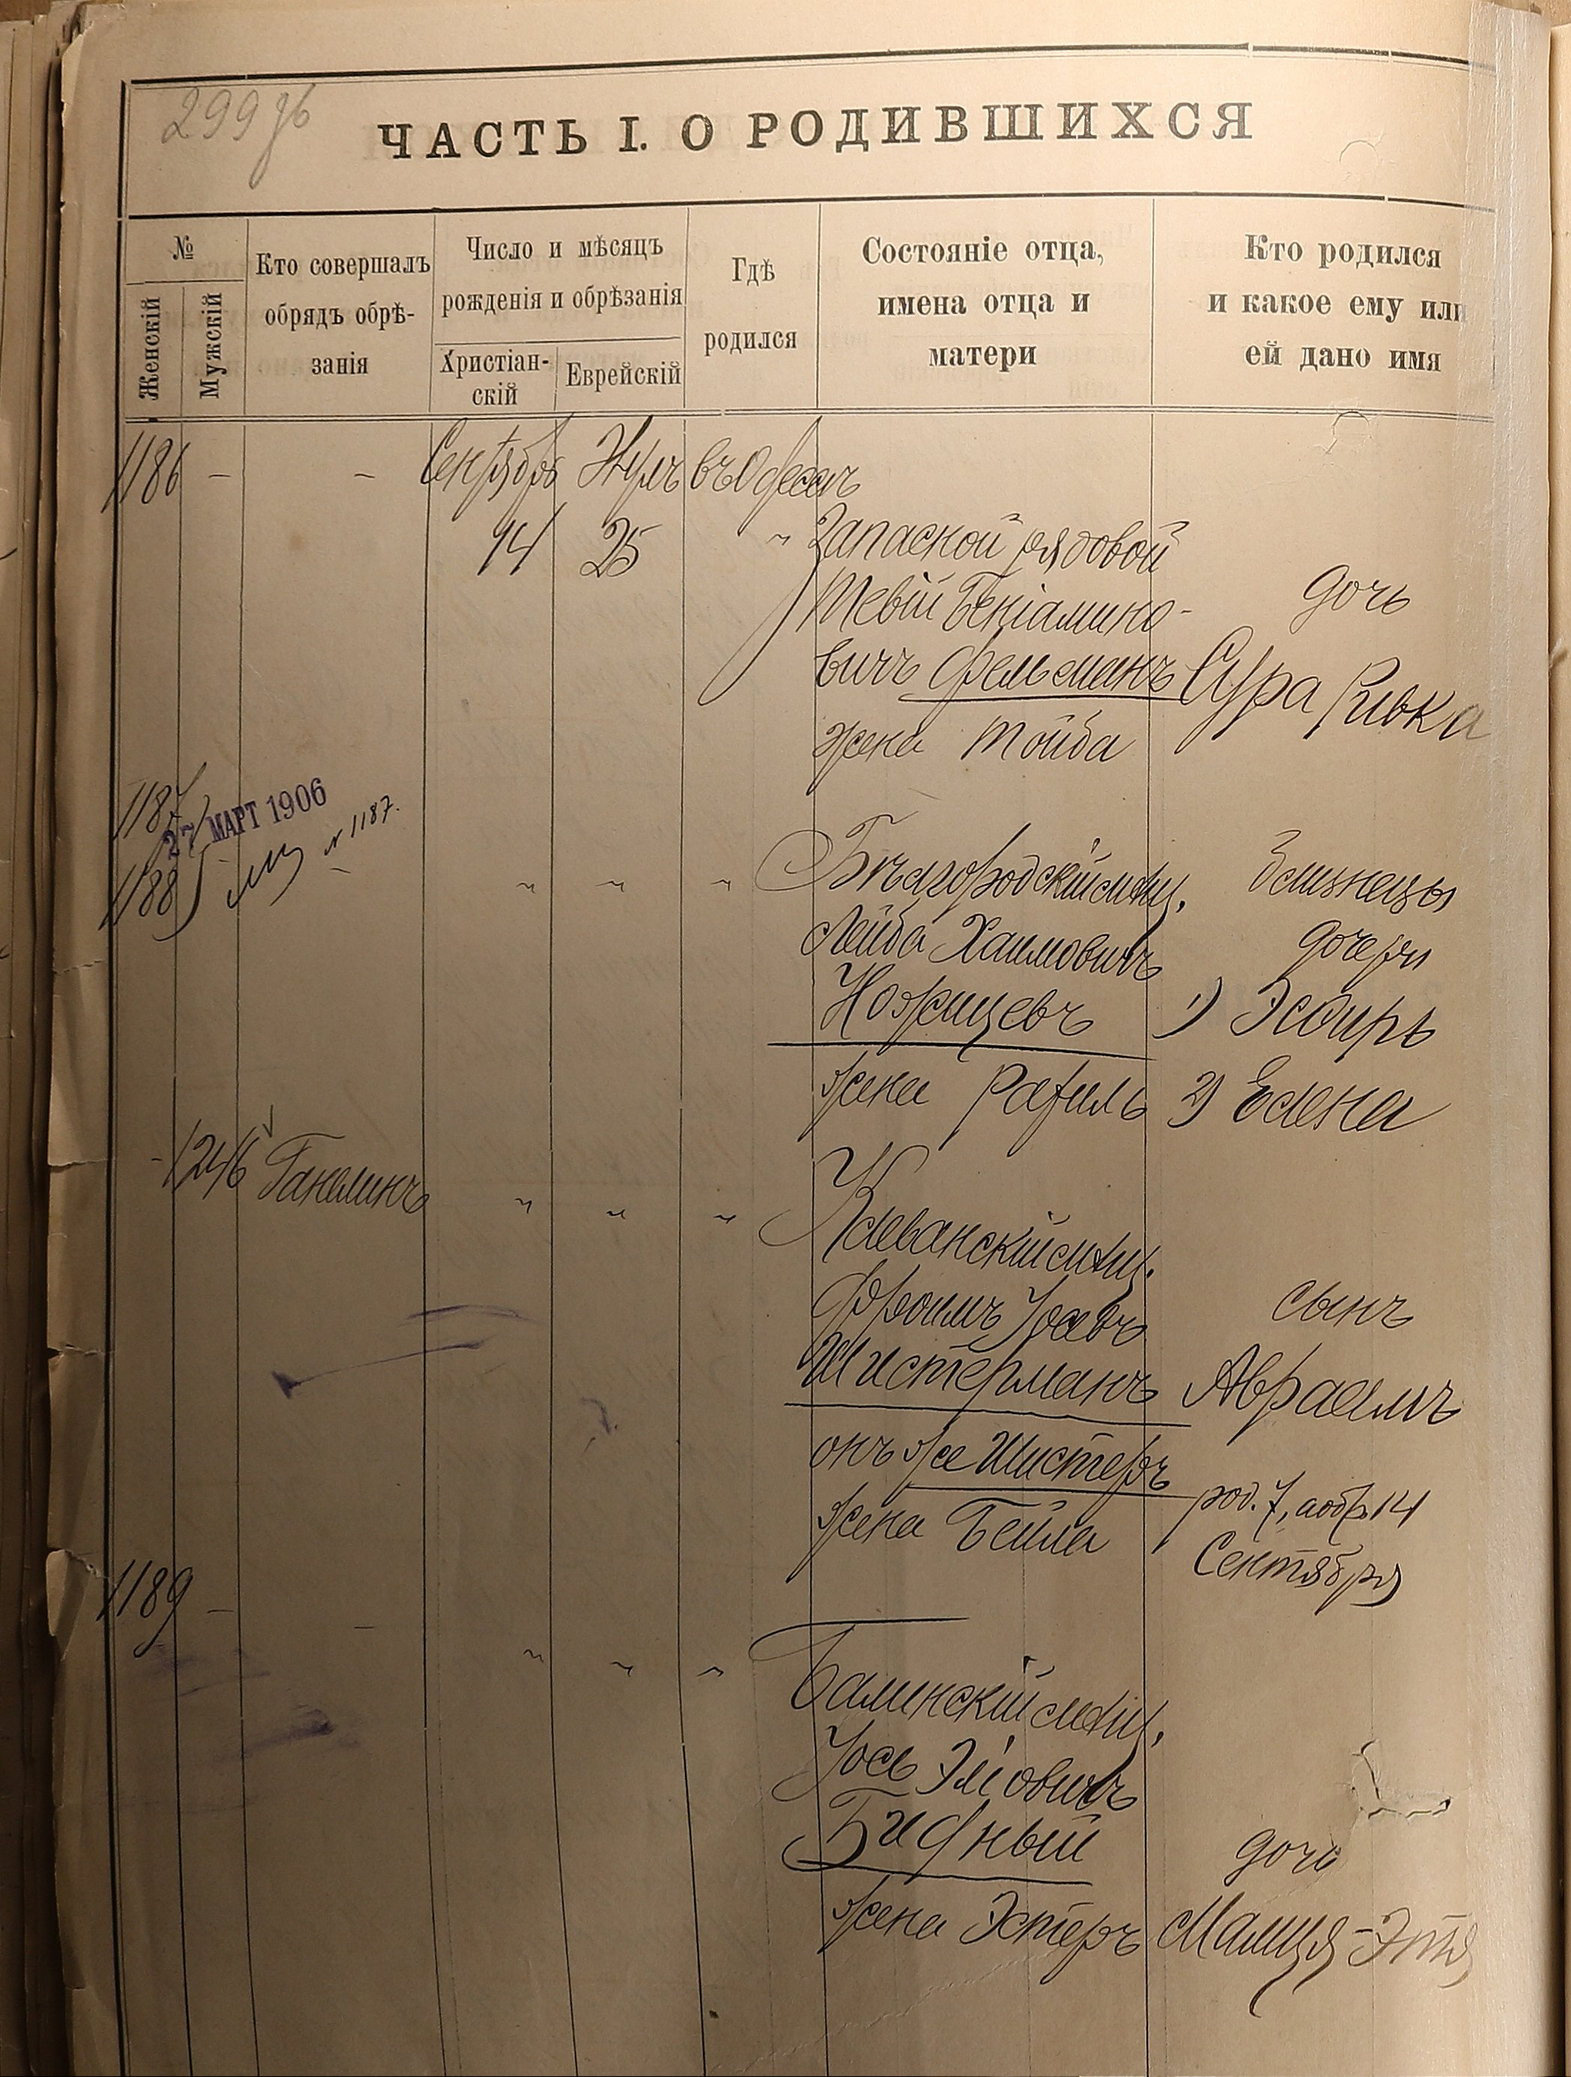 299 об
ЧАСТЬ I. О РОДИВШИХСЯ
№
Женскій
Мужскій
Кто совершалъ
обрядъ обрѣ-
занія
Число и мѣсяцъ
рожденія и обрѣзанія
Христіан-
скій
Еврейскій
Гдѣ
родился
Состояніе отца,
имена отца и
матери
Кто родился
и какое ему или
ей дано имя
1186 - - Сентябрь въ Одессѣ
14 25 " Запасной рядовой
Тевій Беніамино-
вичъ Фельсманъ
жена Тойба
дочь
Сура Ривка
1187
1188
27 МАРТ 1906
№ 1187.
- " " "
мѣщ.
Лейба Хаимовичъ
Ножницевъ
жена Рахиль
близнецы
дочери
1) Эсфирь
2) Елена
- 1246 " " "
Клеванскій мѣщ.
Фроимъ Іосевъ
Шистерманъ
онъ же Шистеръ
жена Бейла
сынъ
Авраамъ
род. 7, а обр. 14
Сентября
1189 - - " " "
мѣщ.
Іось Эліовичъ
Бидный
жена Эстеръ
дочь
Малця-Этя